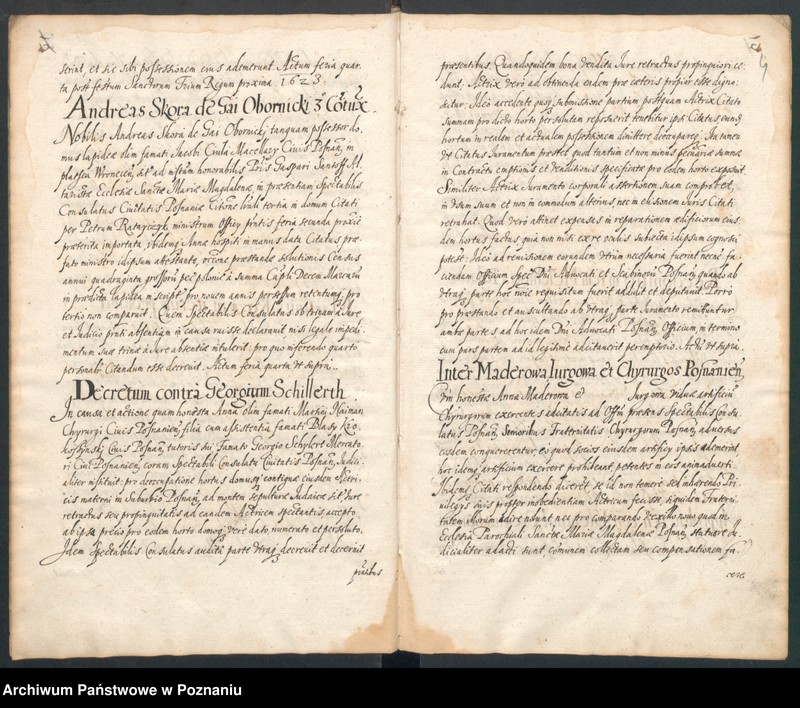 serint, et sic sibi possessionem eius ademerunt. Actum feria quar.
ta post festum Sanctorum Trium Regum proxima 1623.
Andreas Skora de Gai Obornicki
Nobilis Andreas Skora de Gai Obornicki tanquam possessor do.
mus lapideae olim famati Jacobi Civis Posnan, in
platea ad
Ecclesiae Sanctae Mariae Magdalenae, in praesentiam Spectabilis
Consulatus Civitatis Posnaniae tertia in domum Citati
per Petrum ministrum officy feria secunda
praeterita importata, ibidemq Annae hospiti in manus data Citatus prae
fato ministro idipsum attestante, solutionis Census
annui quadraginta a summa
in praedicta lapidea pro novem annis retentumq pro
tertio non comparuit. Quem Spectabilis Consulatus ab
et Judicio absentiam in causa declaravit nisi legale impedi.
mentum suae trinae a Jure absentiae intulerit. pro quo inferendo quarto
Citandum esse decrevit. Actum feria quarta ut supra.
Decretum contra Georgium Schillerth
In causa et actione quam honesta Anna olim famati
Chyrurgi Civis Posnanien, filia cum assistentia famati Blasy
Civis Posnan, tutoris sui famato Georgio Schylert Mercato.
ri Civi Posnanien, coram Spectabili Consulatu Civitatis Posnan, Judici.
aliter instituit pro horti domusq contiguae eiusdem
cis materni in Suburbio Posnan, ad montem Sepulturae Judaicae siti Jure
retractus seu propinquitatis ad eandem Actricem spectantis, accepto
ab ipsa precio pro eodem horto domoq vere dato, numerato et persoluto.
Idem Spectabilis Consulatus auditis parte utraq decreuit et decernit
praesentibus Quandoquidem bona vendita Jure retractus propinquiori ce.
dunt. Actrix vero ad obtinenda eadem prae caeteris propior esse digno.
scitur. Ideo accedente submissione partium postquam Actrix Citato
summam pro dicto horto persolutam reposuerit tenebitur ipsi Citatus eundq
hortum in realem et actualem possessionem dimittere
ut Citatus Juramentum praestet quod tantum et non minus pecuniariae summae
in Contractu emptionis et venditionis specificatae pro eodem horto exposuit.
Similiter Actrix Juramento corporali assertionem suam
in usum suum et non in commodum alterius, nec in elusionem Juris Citati
retrahat. Quod vero attinet expensas in reparationem aedificiorum eius.
dem hortus factas, quia non nisi ex re oculis subiecta idipsum cognosci
potest. Ideo ad revisionem eorundem utrum necessaria fuerint necne fa.
ciendam Officium Advocati et Scabinorum Posnan, quando ab
utraq parte requisitum fuerit addidit et deputavit. Porro
pro praestando et auscultando ab utraq parte Juramento remittuntur
ambae partes ad hoc idem Advocati Posnan, Officium, in termino
cum pars partem ad id legitime adcitaverit peremptorio. Actum ut supra.
Inter Maderowa Iurgowa et Chyrurgos Posnanien,
Cum honestae Anna Maderowa et Iurgowa viduae artificium
Chyrurgorum exercentes adcitatis ad praesens Spectabilis Consu.
latus Posnan, Senioribus Fraternitatis Chyrurgorum Posnan, adversus
eosdem conquererentur, eo quod socios eiusdem artificy ipsis ademerint
hoc idemq artificium exercere prohibeant, petentes in eos animadverti.
Ibidemq Citati respondendo dicerent se id non temere sed inhaerendo Pri.
vilegys suis propter inobedientiam Actricum fecisse, siquidem Fraterni.
tatem illorum adire nolunt nec pro comparando vexillo novo quod in
Ecclesia Parochiali Sanctae Mariae Magdalenae Posnan, statuere
dicialiter adacti sunt, comunem collectam seu compensationem fa.
cere.